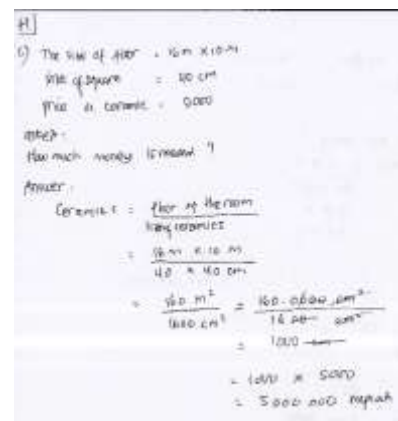 H]
1) The size of floor = 16 m x 10 m
size of square = 40 cm
price a ceramic = 5000
asked :
How much money is needed ?
Answer :
Ceramics = floor of the room
ceramics
= 16 m x 10 m
40 x 40 cm
= 160 m² = 160.0000 cm²
1600 cm² 1600 cm²
= 1000
= 1000 x 5000
= 5000 000 rupiah